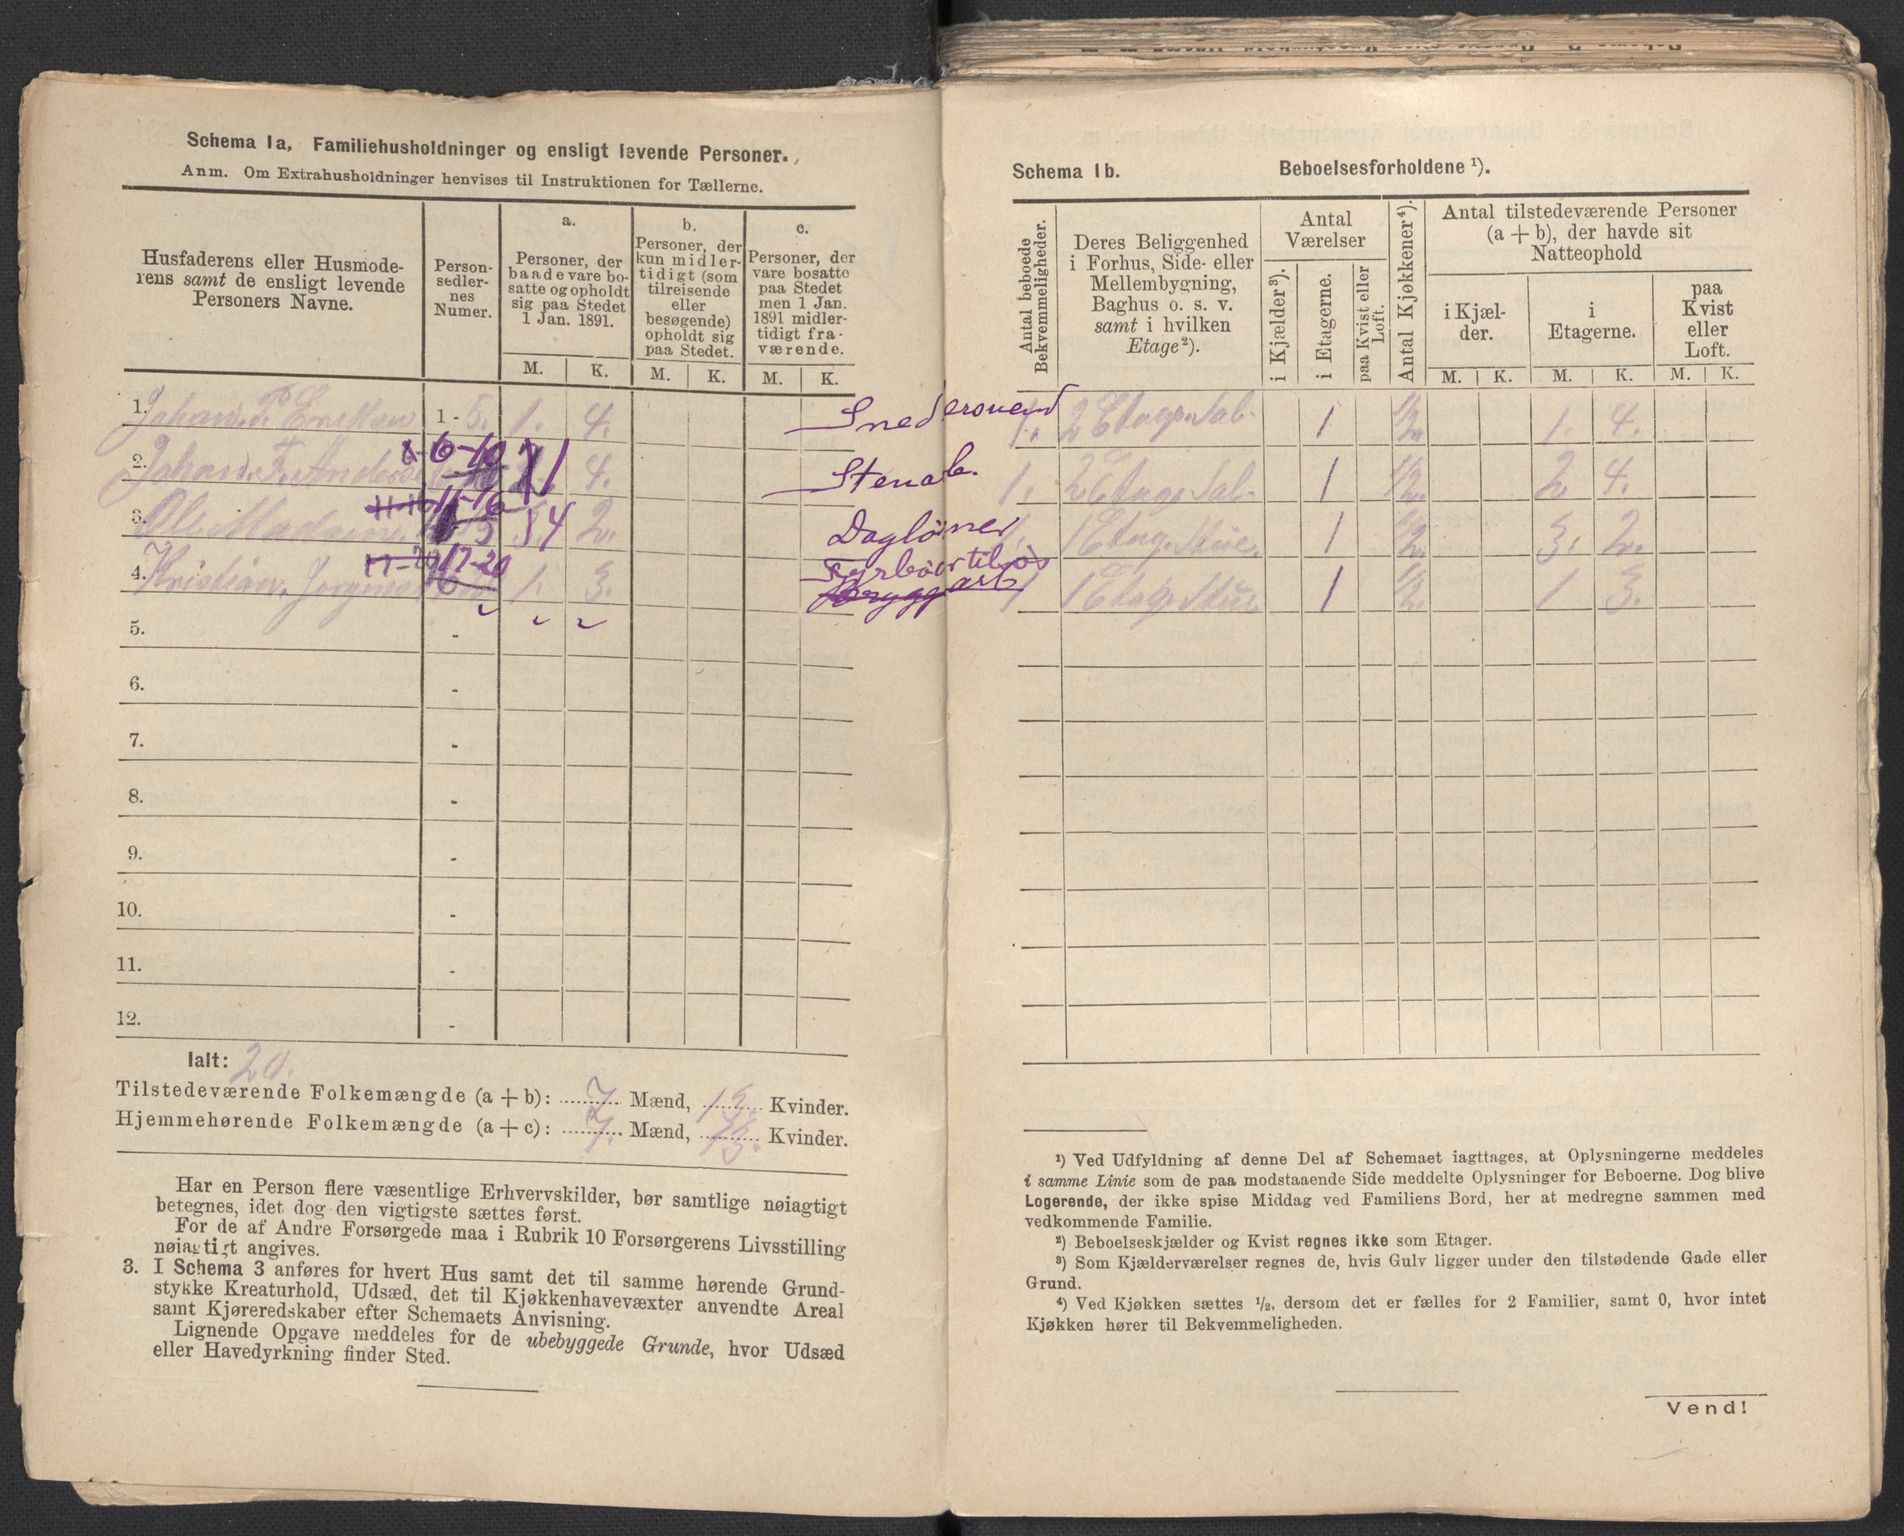 Schema 1a, Familiehusholdninger og ensligt levende Personer.
Anm. Om Extrahusholdninger henvises til Instruktionen for Tællerne.
Husfaderens eller Husmode-
rens samt de ensligt levende
Personers Navne.
Person-
sedler-
nes
Numer.
a.
Personer, der
baade vare bo-
satte og opholdt
sig paa Stedet
1 Jan. 1891.
b.
Personer, der
kun midler-
tidigt (som
tilreisende
eller
besøgende)
opholdt sig
paa Stedet.
c.
Personer, der
vare bosatte
paa Stedet
men 1 Jan.
1891 midler-
tidigt fra-
værende.
M. K. M. K. M. K.
1. Johan. P. 1 - 5. 1. 4. Snedersvend
2. Johan. F. Anderse 6-10 1 4. Stenarb.
11-16 11-16
3. Ole Madsen 4 2. Dagløner
17-20 17-20
4. Kristian. Jørgens 1. 3. Fyrbøter
Bryggarb
5. -
6. -
7. -
8. -
9. -
10. -
11. -
12. -
Ialt: 20.
Tilstedeværende Folkemængde (a + b): 7 Mænd, 13 Kvinder.
Hjemmehørende Folkemængde (a + c): 7. Mænd, 13. Kvinder.
Har en Person flere væsentlige Erhvervskilder, bør samtlige nøiagtigt
betegnes, idet dog den vigtigste sættes først.
For de af Andre Forsørgede maa i Rubrik 10 Forsørgerens Livsstilling
nøiagtigt angives.
3. I Schema 3 anføres for hvert Hus samt det til samme hørende Grund-
stykke Kreaturhold, Udsæd, det til Kjøkkenhavevæxter anvendte Areal
samt Kjøreredskaber efter Schemaets Anvisning.
Lignende Opgave meddeles for de ubebyggede Grunde, hvor Udsæd
eller Havedyrkning finder Sted.
Schema 1b. Beboelsesforholdene ¹).
Antal beboede
Bekvemmeligheder.
Deres Beliggenhed
i Forhus, Side- eller
Mellembygning,
Baghus o. s. v.
samt i hvilken
Etage ²).
Antal
Værelser
i Kjælder ³).
i Etagerne.
paa Kvist eller
Loft.
Antal Kjøkkener ⁴).
Antal tilstedeværende Personer
(a + b), der havde sit
Natteophold
i Kjæl-
der.
i
Etagerne.
paa
Kvist
eller
Loft.
M. K. M. K. M. K.
1. 2 Etage Sal. 1 1/2. 1. 4.
1. 2 Etage Sal. 1 1/2. 2 4.
1. 1 Etage Stue. 1 1/2. 3. 2.
1 1 Etage Stue. 1 1/2. 1 3.
¹) Ved Udfyldning af denne Del af Schemaet iagttages, at Oplysningerne meddeles
i samme Linie som de paa modstaaende Side meddelte Oplysninger for Beboerne. Dog blive
Logerende, der ikke spise Middag ved Familiens Bord, her at medregne sammen med
vedkommende Familie.
²) Beboelseskjælder og Kvist regnes ikke som Etager.
³) Som Kjælderværelser regnes de, hvis Gulv ligger under den tilstødende Gade eller
Grund.
⁴) Ved Kjøkken sættes ½, dersom det er fælles for 2 Familier, samt 0, hvor intet
Kjøkken hører til Bekvemmeligheden.
Vend!